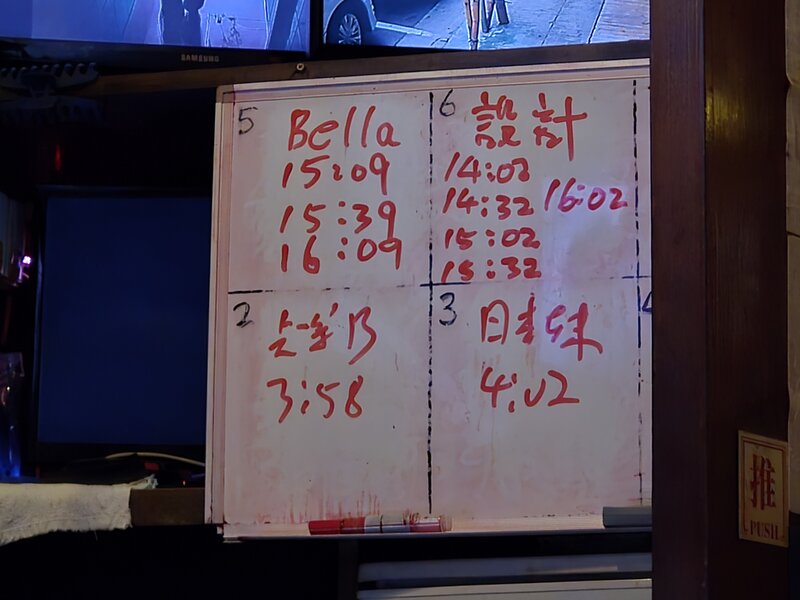 SAMSUNG
5
Bella
15:09
15:39
16:09
6
設計
14:02
14:32 16:02
15:02
15:32
2
3:58
3
4:02
推
PUSH